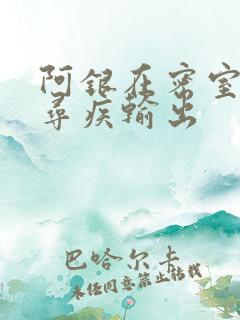 阿银在密室
寻疾输出
巴哈尔卡
未经同意禁止转载